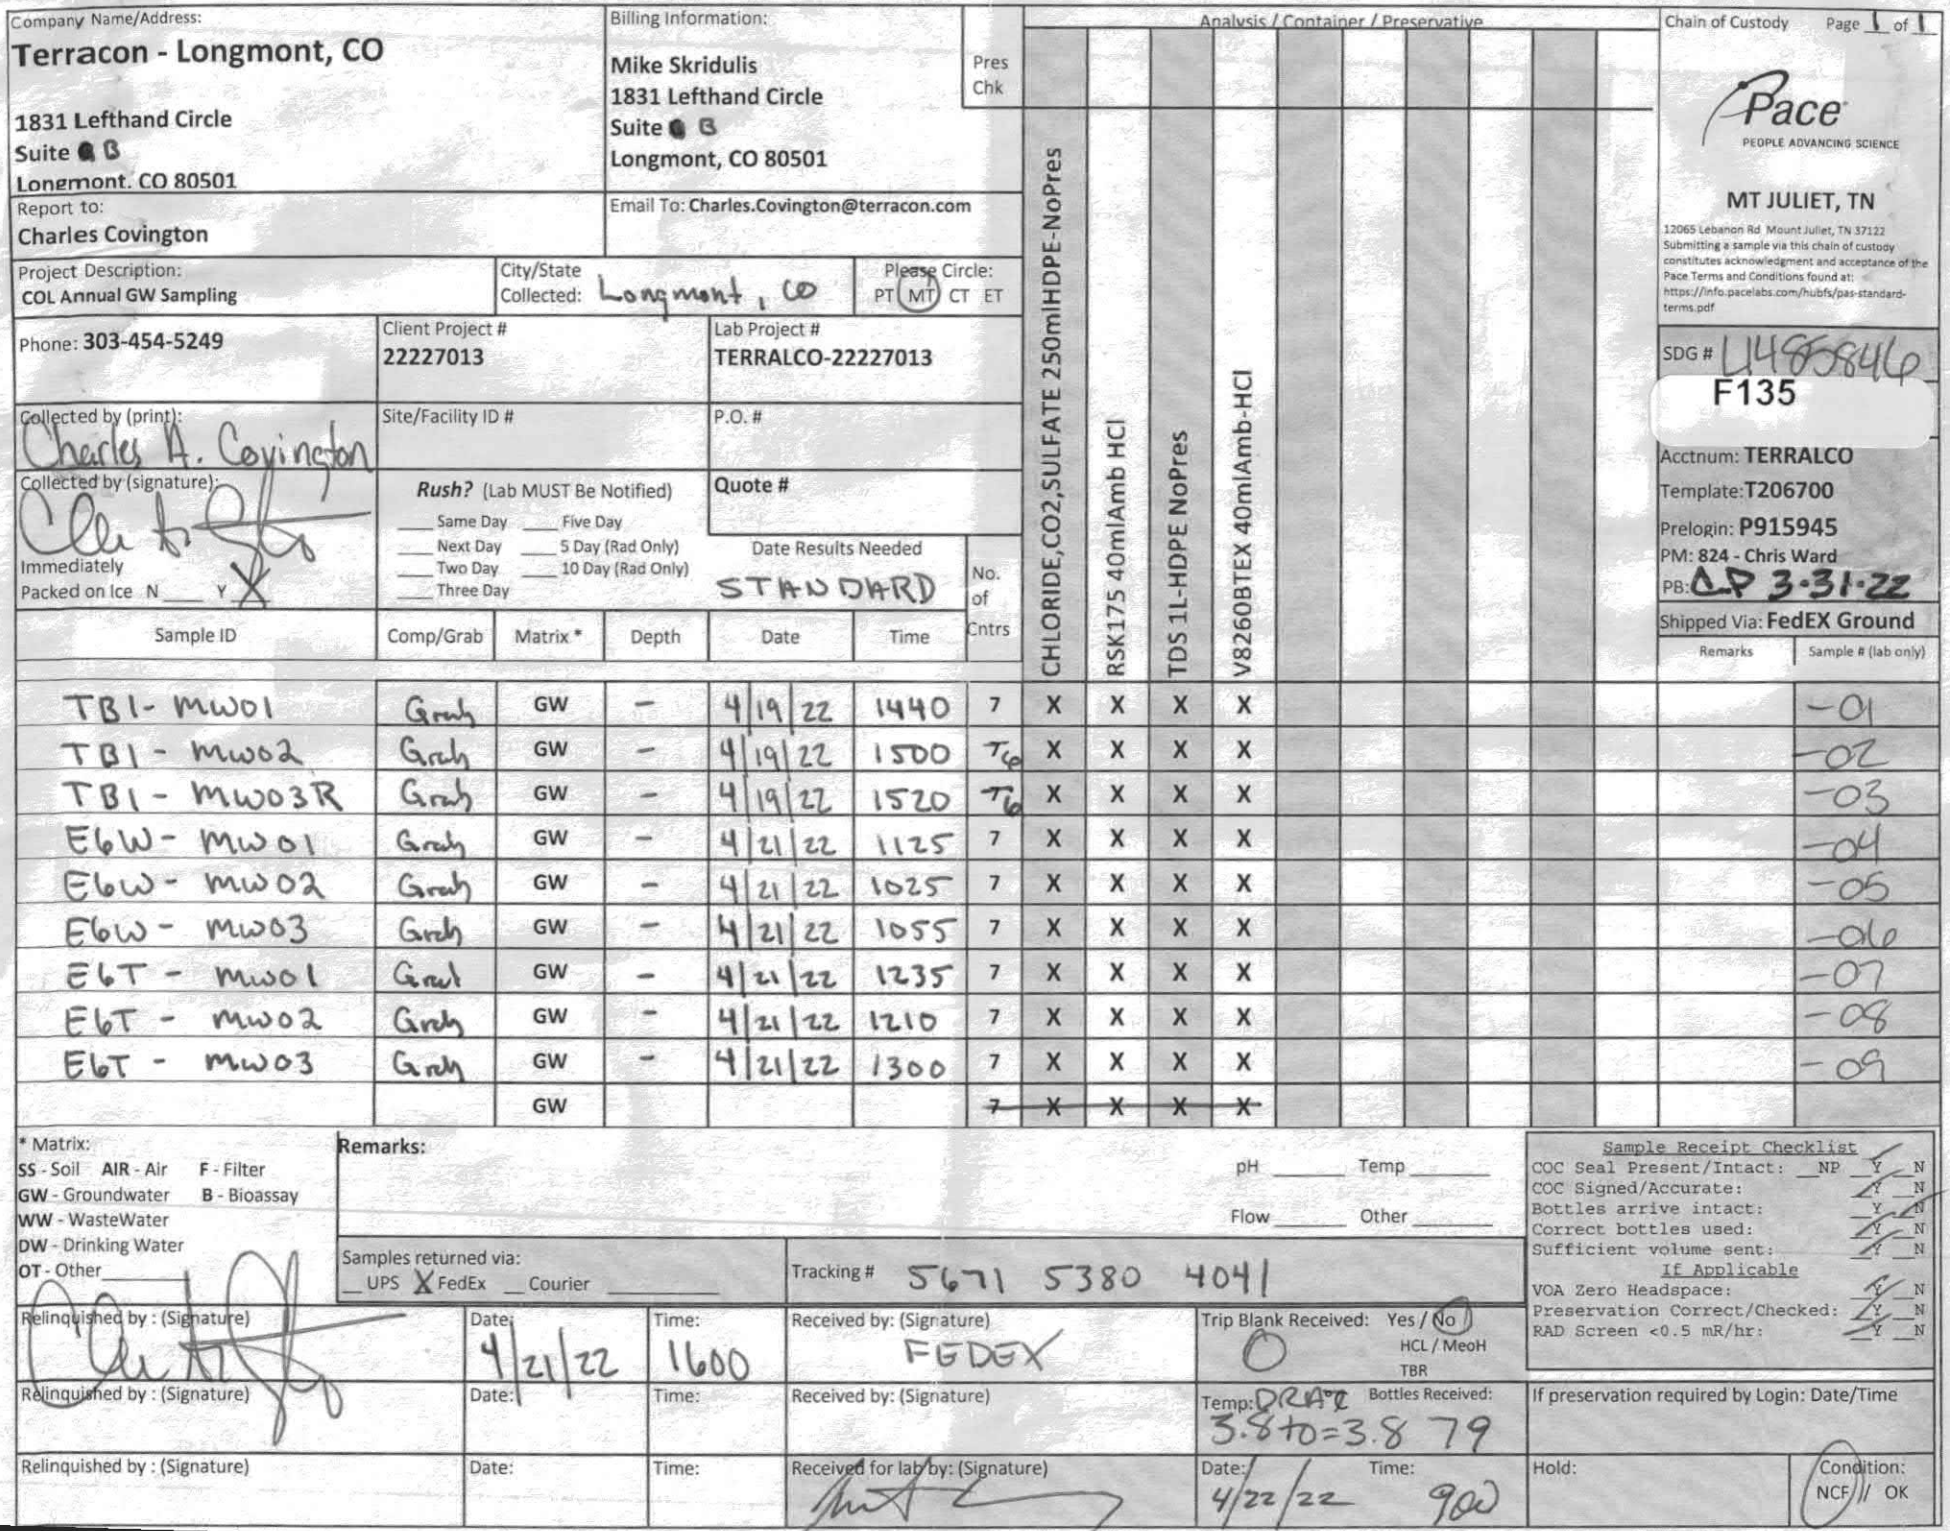 Company Name/Address:
Terracon - Longmont, CO
1831 Lefthand Circle
Suite B
Longmont. CO 80501
Billing Information:
Mike Skridulis
1831 Lefthand Circle
Suite B
Longmont, CO 80501
Pres
Chk
Analysis / Container / Preservative
CHLORIDE,CO2,SULFATE 250mlHDPE-NoPres
RSK175 40mlAmb HCl
TDS 1L-HDPE NoPres
V8260BTEX 40mlAmb-HCl
Chain of Custody Page 1 of 1
Pace
PEOPLE ADVANCING SCIENCE
MT JULIET, TN
12065 Lebanon Rd Mount Juliet, TN 37122
Submitting a sample via this chain of custody
constitutes acknowledgment and acceptance of the
Pace Terms and Conditions found at:
https://info.pacelabs.com/hubfs/pas-standard-
terms.pdf
Report to:
Charles Covington
Email To: Charles.Covington@terracon.com
Project Description:
COL Annual GW Sampling
City/State
Collected: Longmont, CO
Please Circle:
PT MT CT ET
Phone: 303-454-5249
Client Project #
22227013
Lab Project #
TERRALCO-22227013
SDG #
F135
Collected by (print):
Charles A. Covington
Site/Facility ID #
P.O. #
Acctnum: TERRALCO
Template:T206700
Prelogin: P915945
PM: 824 - Chris Ward
PB: 3-31-22
Shipped Via: FedEX Ground
Collected by (signature):
Immediately
Packed on Ice N ___ Y X
Rush? (Lab MUST Be Notified)
___ Same Day ___ Five Day
___ Next Day ___ 5 Day (Rad Only)
___ Two Day ___ 10 Day (Rad Only)
___ Three Day
Quote #
Date Results Needed
STANDARD
No.
of
Cntrs
Sample ID Comp/Grab Matrix * Depth Date Time Remarks Sample # (lab only)
TB1- MW01 Grab GW - 4/19/22 1440 7 X X X X -01
TB1 - MW02 Grab GW - 4/19/22 1500 7 6 X X X X -02
TB1 - MW03R Grab GW - 4/19/22 1520 7 6 X X X X -03
E6W - MW01 Grab GW - 4/21/22 1125 7 X X X X -04
E6W - MW02 Grab GW - 4/21/22 1025 7 X X X X -05
E6W - MW03 Grab GW - 4/21/22 1055 7 X X X X -06
E6T - MW01 Grab GW - 4/21/22 1235 7 X X X X -07
E6T - MW02 Grab GW - 4/21/22 1210 7 X X X X -08
E6T - MW03 Grab GW - 4/21/22 1300 7 X X X X -09
GW 7 X X X X
* Matrix:
SS - Soil AIR - Air F - Filter
GW - Groundwater B - Bioassay
WW - WasteWater
DW - Drinking Water
OT - Other
Remarks:
pH ___ Temp ___
Flow ___ Other ___
Samples returned via:
__ UPS X FedEx __ Courier
Tracking # 5671 5380 4041
Sample Receipt Checklist
COC Seal Present/Intact: __NP Y N
COC Signed/Accurate: Y N
Bottles arrive intact: Y N
Correct bottles used: Y N
Sufficient volume sent: Y N
If Applicable
VOA Zero Headspace: Y N
Preservation Correct/Checked: Y N
RAD Screen <0.5 mR/hr: Y N
Relinquished by : (Signature)
Date: 4/21/22
Time: 1600
Received by: (Signature)
FEDEX
Trip Blank Received: Yes / No
0
HCL / MeoH
TBR
Relinquished by : (Signature)
Date:
Time:
Received by: (Signature)
Temp: °C Bottles Received:
3.8+0=3.8 79
If preservation required by Login: Date/Time
Relinquished by : (Signature)
Date:
Time:
Received for lab by: (Signature)
Date: 4/22/22
Time: 900
Hold:
Condition:
NCF / OK